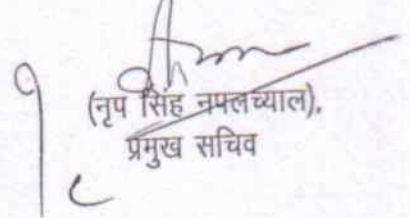 (नृप सिंह नपलच्याल),
प्रमुख सचिव